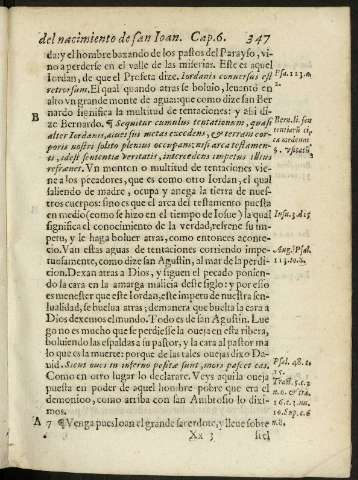 del nacimiento de san Ioan. Cap.6. 347
da: y el hombre baxando de los pastos del Parayso, vi-
no a perderse en el valle de las miserias. Este es aquel
Iordan, de que el Profeta dize. Iordanis conuersus est
retrorsum. El qual quando atras se boluio, leuantó en
alto vn grande monte de aguas: que como dize san Ber
nardo significa la multitud de tentaciones: y assi di-
B
ze Bernardo. ¶ Sequitur cumulus tentationum, quasi
alter Iordanis, alueisuis metas excedens, & terram cor-
poris nostri solito plenius occupans: nisi arca testamen-
ti, idest sententia veritatis, intercedens impetus illius
refrænet. Vn monton o multitud de tentaciones vie-
ne a los pecadores, que es como otro Iordan, el qual
saliendo de madre, ocupa y anega la tierra de nues-
tros cuerpos: sino es que el arca del testamento puesta
en medio (como se hizo en el tiempo de Iosue) la qual
significa el conocimiento de la verdad, refrene su im-
petu, y le haga boluer atras, como entonces acontе-
cio. Van estas aguas de tentaciones corriendo impe-
tuosamente, como dize san Agustin, al mar de la perdi-
cion. Dexan atras a Dios, y siguen el pecado ponien-
do la cara en la amarga malicia deste siglo: y por esso
es menester que este Iordan, este impetu de nuestra sen-
sualidad, se buelua atras: demanera que buelta la cara a
Dios dexemos el mundo. Todo es de san Agustin. Lue
go no es mucho que se perdiesse la oueja en esta ribera,
boluiendo las espaldas a su pastor, y la cara al pastor ma
lo que es la muerte: porque de las tales ouejas dixo Da-
uid. Sicut oues in inferno positæ sunt, mors pascet eas.
Como en otro lugar lo declarare. Veys aquila oueja
puesta en poder de aquel hombre pobre que era el
demonio, como arriba con san Ambrosio lo dixi-
mos.
A 7 ¶ Venga pues Ioan el grande sacerdote, y lleue sobre
Xx 3 sus
Psa. 113.a.
Bern. li. sen
tentiarũ
Iosu. 3. d. 15
Aug. Psal.
113. to. 8.
Psal. 48. c.
15.
n.8.